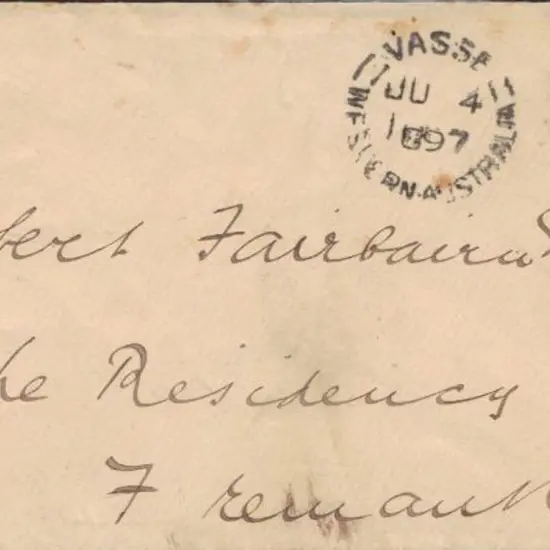 VASSE
JU 4
1897
WESTERN AUSTRALIA
bert Fairbairn
he Residency
Fremant